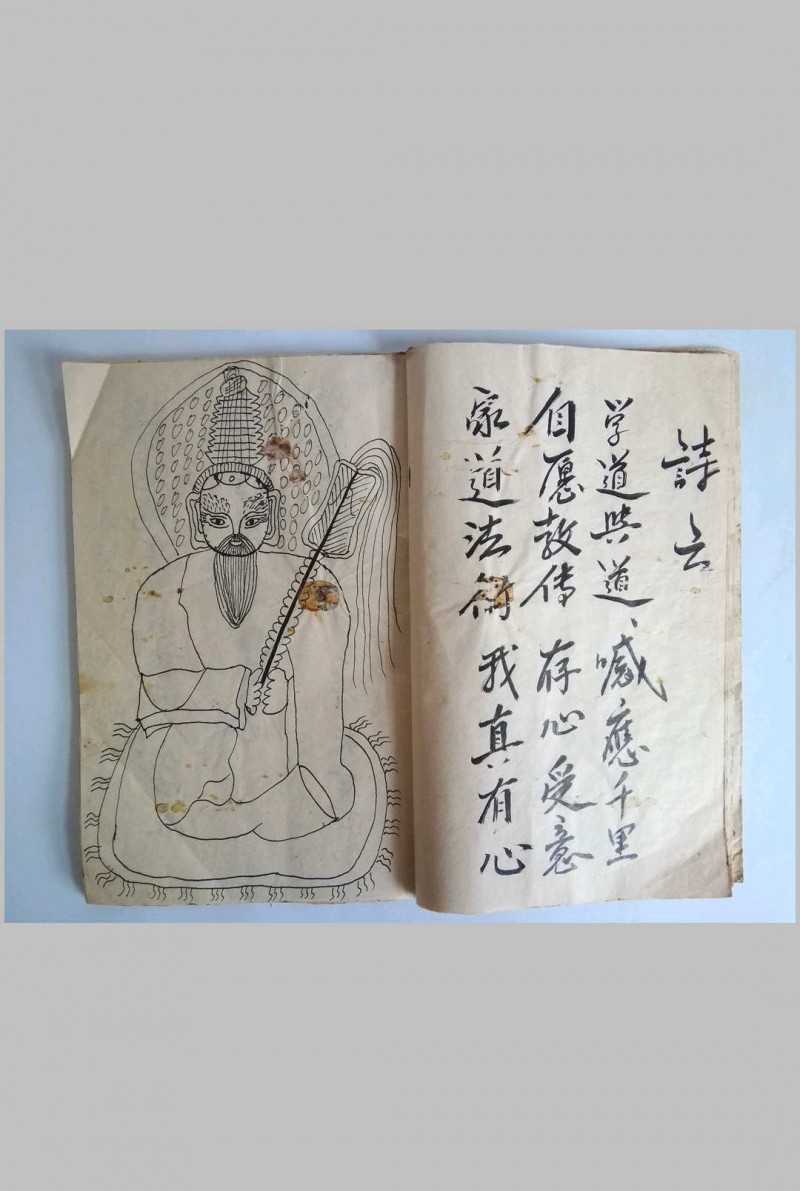 詩云
学道與道、喊應千里
自愿教传 存心受意
家道法術 我真有心